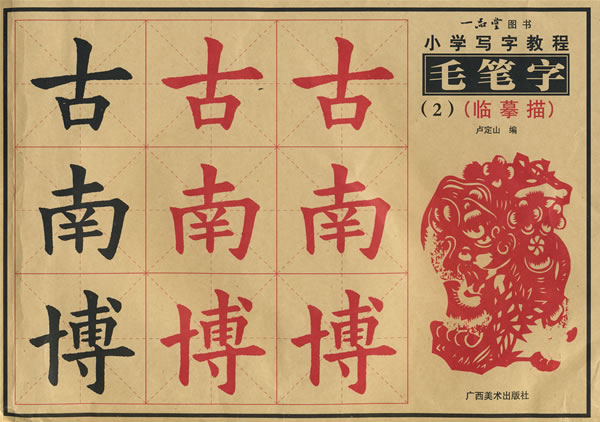 古 古 古
南 南 南
博 博 博
一品堂图书
小学写字教程
毛笔字
（2）（临摹描）
卢定山 编
广西美术出版社